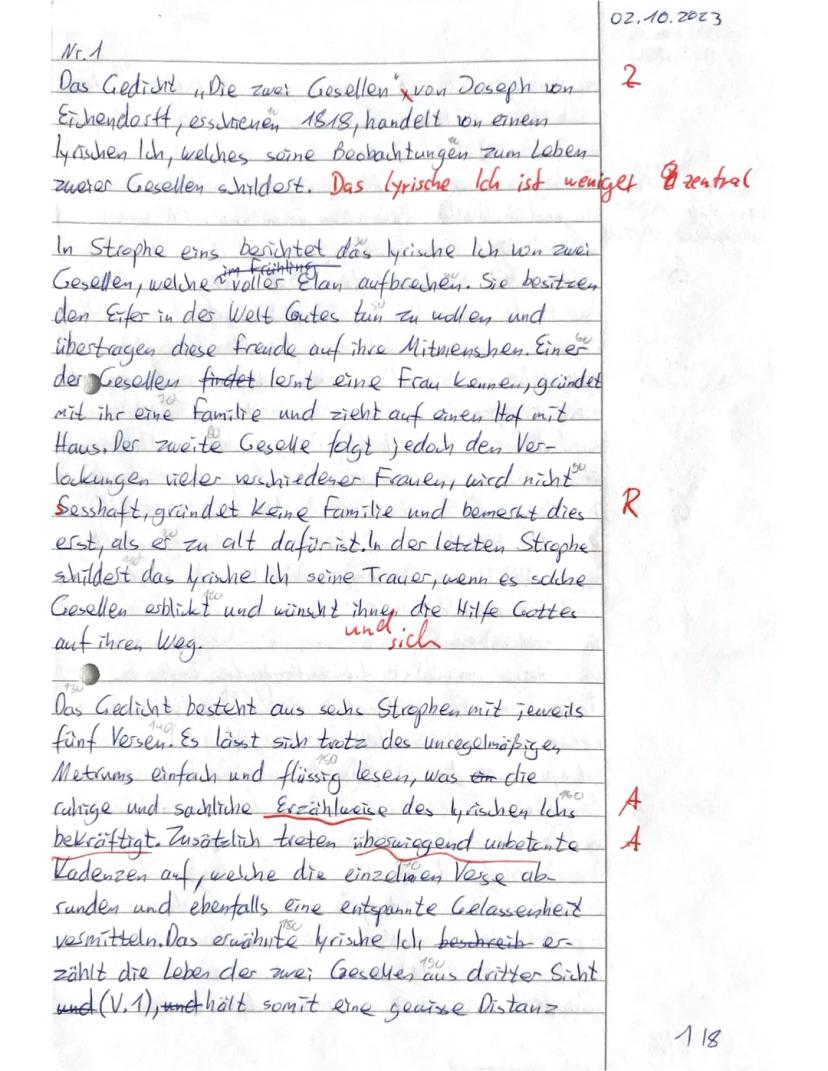 02.10.2023
Nr. 1
Das Gedicht „Die zwei Gesellen“ von Joseph von Z
Eichendorff, erschienen 1818, handelt von einem
lyrischen Ich, welches seine Beobachtungen zum Leben
zweier Gesellen schildert. Das lyrische Ich ist weniger zentral
In Strophe eins berichtet das lyrische Ich von zwei
im Frühling
Gesellen, welche voller Elan aufbrechen. Sie besitzen
den Eifer in der Welt Gutes tun zu wollen und
übertragen diese Freude auf ihre Mitmenschen. Einer
der Gesellen findet lernt eine Frau kennen, gründet
mit ihr eine Familie und zieht auf einen Hof mit
Haus. Der zweite Geselle folgt jedoch den Ver-
lockungen vieler verschiedener Frauen, wird nicht
Sesshaft, gründet keine Familie und bemerkt dies R
erst, als er zu alt dafür ist. In der letzten Strophe
schildert das lyrische Ich seine Trauer, wenn es solche
Gesellen erblickt und wünscht ihnen die Hilfe Gottes
und sich
auf ihren Weg.
Das Gedicht besteht aus sechs Strophen mit jeweils
fünf Versen. Es lässt sich trotz des unregelmäßigen
Metrums einfach und flüssig lesen, was die
ruhige und sachliche Erzählweise des lyrischen Ichs A
bekräftigt. Zusätzlich treten überwiegend unbetonte A
Kadenzen auf, welche die einzelnen Verse ab-
runden und ebenfalls eine entspannte Gelassenheit
vermitteln. Das erwähnte lyrische Ich beschreib er-
zählt die Leben der zwei Gesellen aus dritter Sicht
und (V. 1), und hält somit eine gewisse Distanz
1 | 8